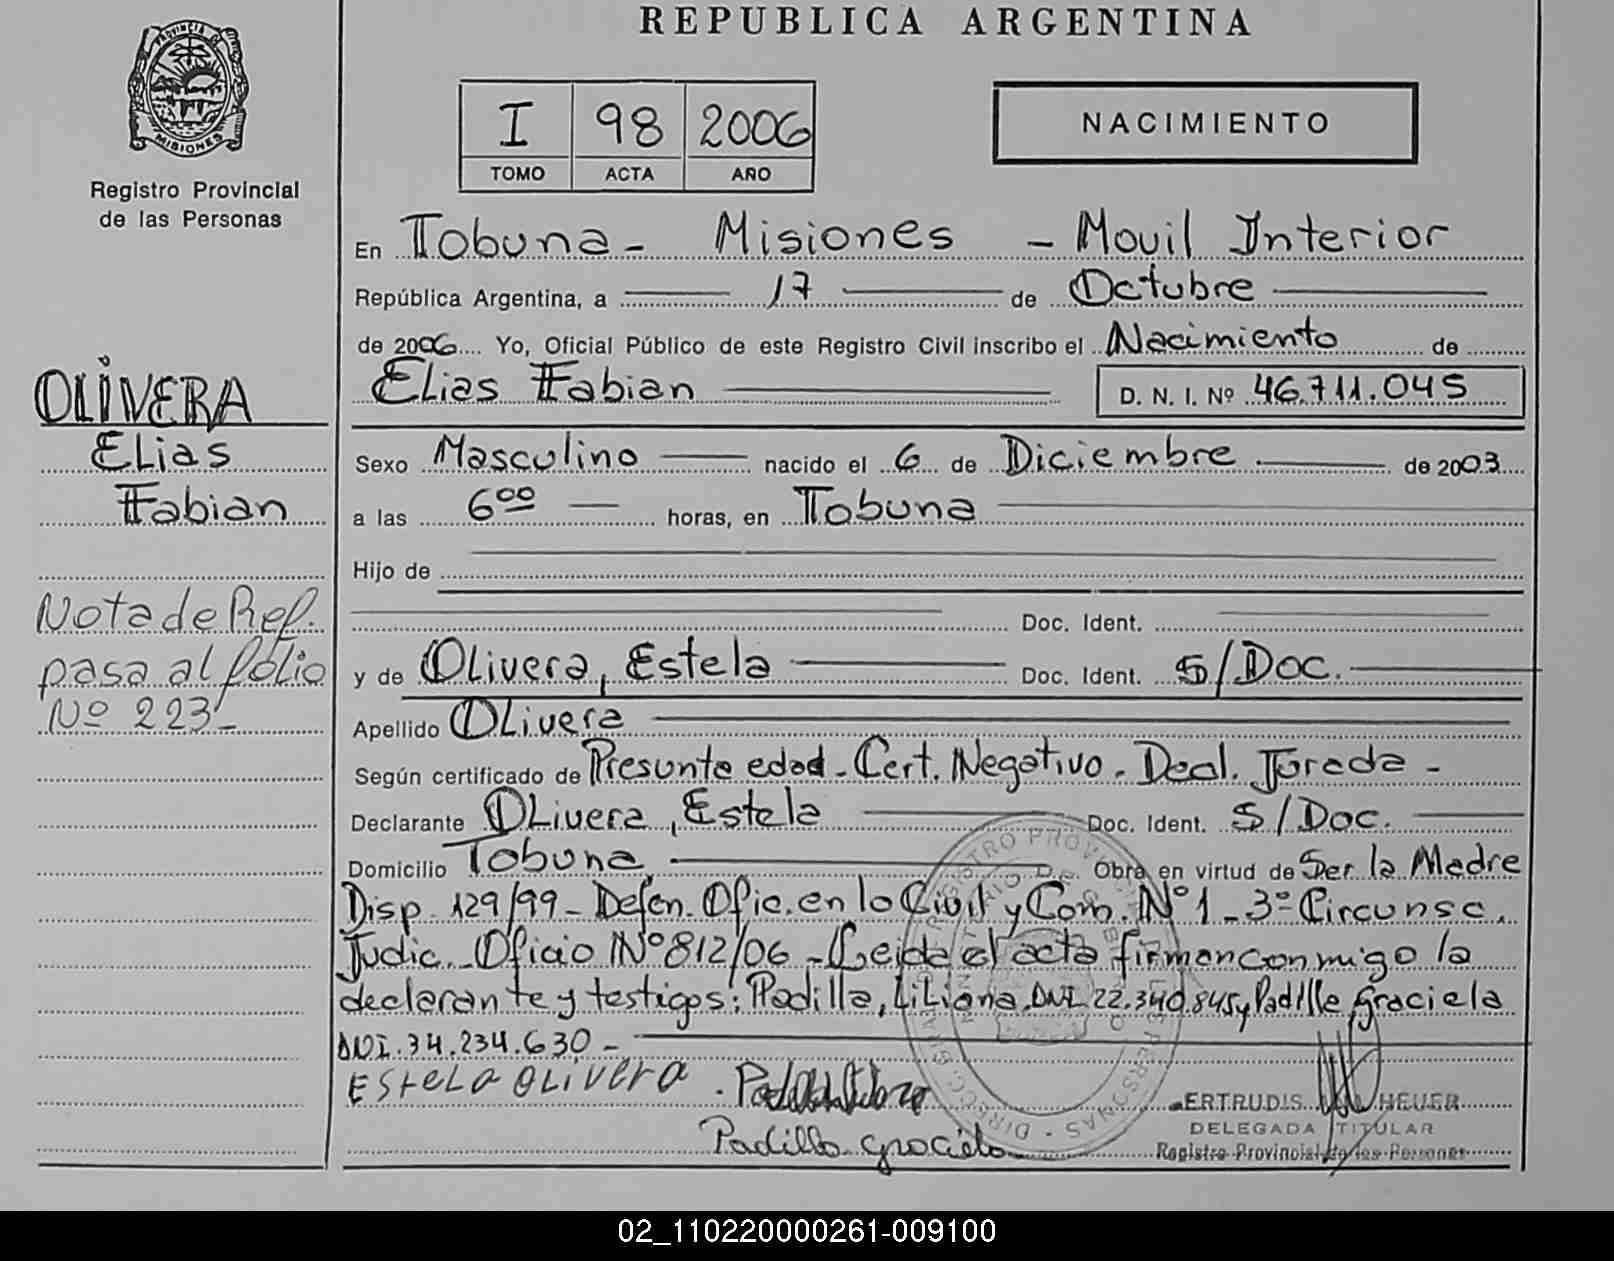 REPUBLICA ARGENTINA
PROVINCIA DE
MISIONES
Registro Provincial
de las Personas
I 98 2006
TOMO ACTA AÑO
NACIMIENTO
En Tobuna - Misiones - Movil Interior
República Argentina, a 17 de Octubre
de 2006 Yo, Oficial Público de este Registro Civil inscribo el Nacimiento de
Elias Fabian D. N. I. Nº 46.711.045
OLIVERA
Elias
Fabian
Sexo Masculino nacido el 6 de Diciembre de 2003
a las 6 00 horas, en Tobuna
Hijo de
Doc. Ident.
Nota de Ref.
pasa al folio
Nº 223-
y de Olivera, Estela Doc. Ident. S/Doc.
Apellido Olivera
Según certificado de Presunta edad - Cert. Negativo - Decl. Jurada -
Declarante Olivera, Estela Doc. Ident. S/Doc.
Domicilio Tobuna, Obra en virtud de Ser la Madre
Disp. 129/99 - Defen. Ofic. en lo Civil y Com. Nº 1 - 3º Circunsc.
Judic. - Oficio Nº 812/06 - Leida el acta firman conmigo la
declarante y testigos: Padilla, Liliana, DNI 22.340.845 y Padilla, Graciela
DNI. 34.234.630 -
Estela Olivera
Padilla Graciela
ERTRUDIS HEUER
DELEGADA TITULAR
Registro Provincial de las Personas
02_110220000261-009100